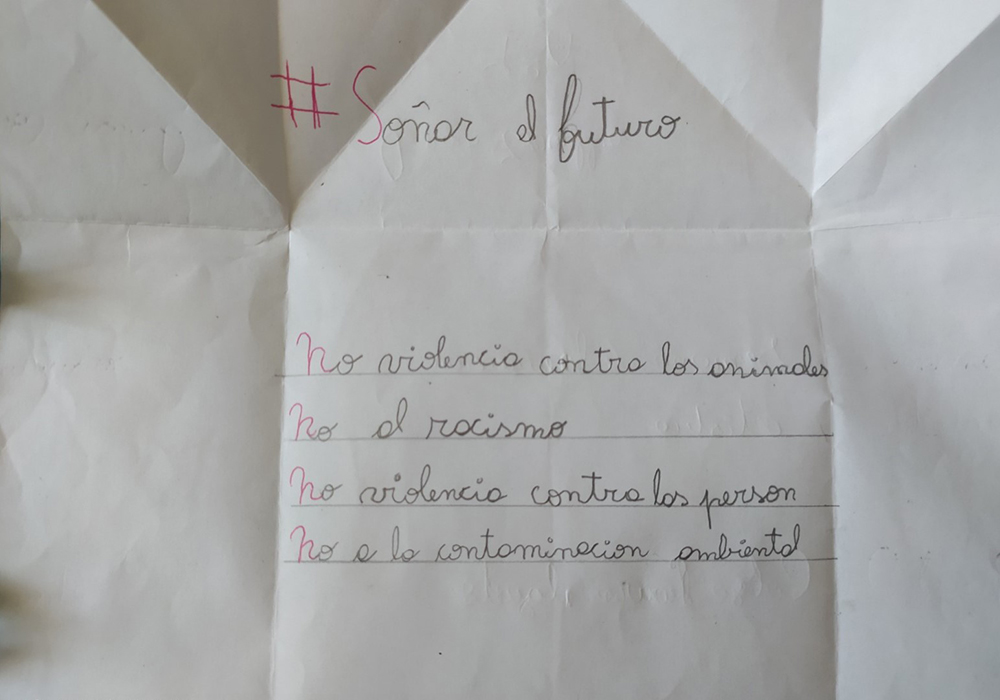 #Soñar el futuro
No violencia contra los animales
No al racismo
No violencia contra las person
No a la contaminacion ambiental